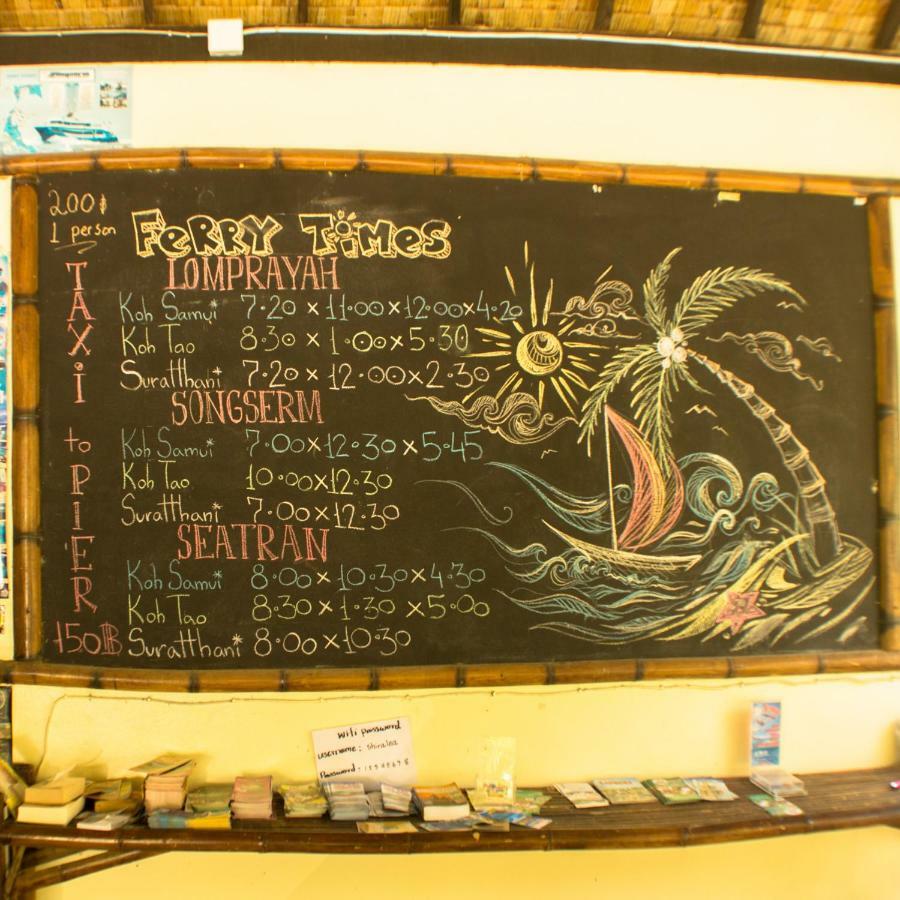 200฿
1 person
FeRRY TiMes
LOMPRAYAH
Koh Samui 7.20 × 11.00 × 12.00 × 4.20
Koh Tao 8.30 × 1.00 × 5.30
Suratthani 7.20 × 12.00 × 2.30
SONGSERM
Koh Samui 7.00 × 12.30 × 5.45
Koh Tao 10.00 × 12.30
Suratthani 7.00 × 12.30
SEATRAN
Koh Samui 8.00 × 10.30 × 4.30
Koh Tao 8.30 × 1.30 × 5.00
Suratthani 8.00 × 10.30
TAXi
to
PIER
150฿
Wifi password
username: shiralea
Password: